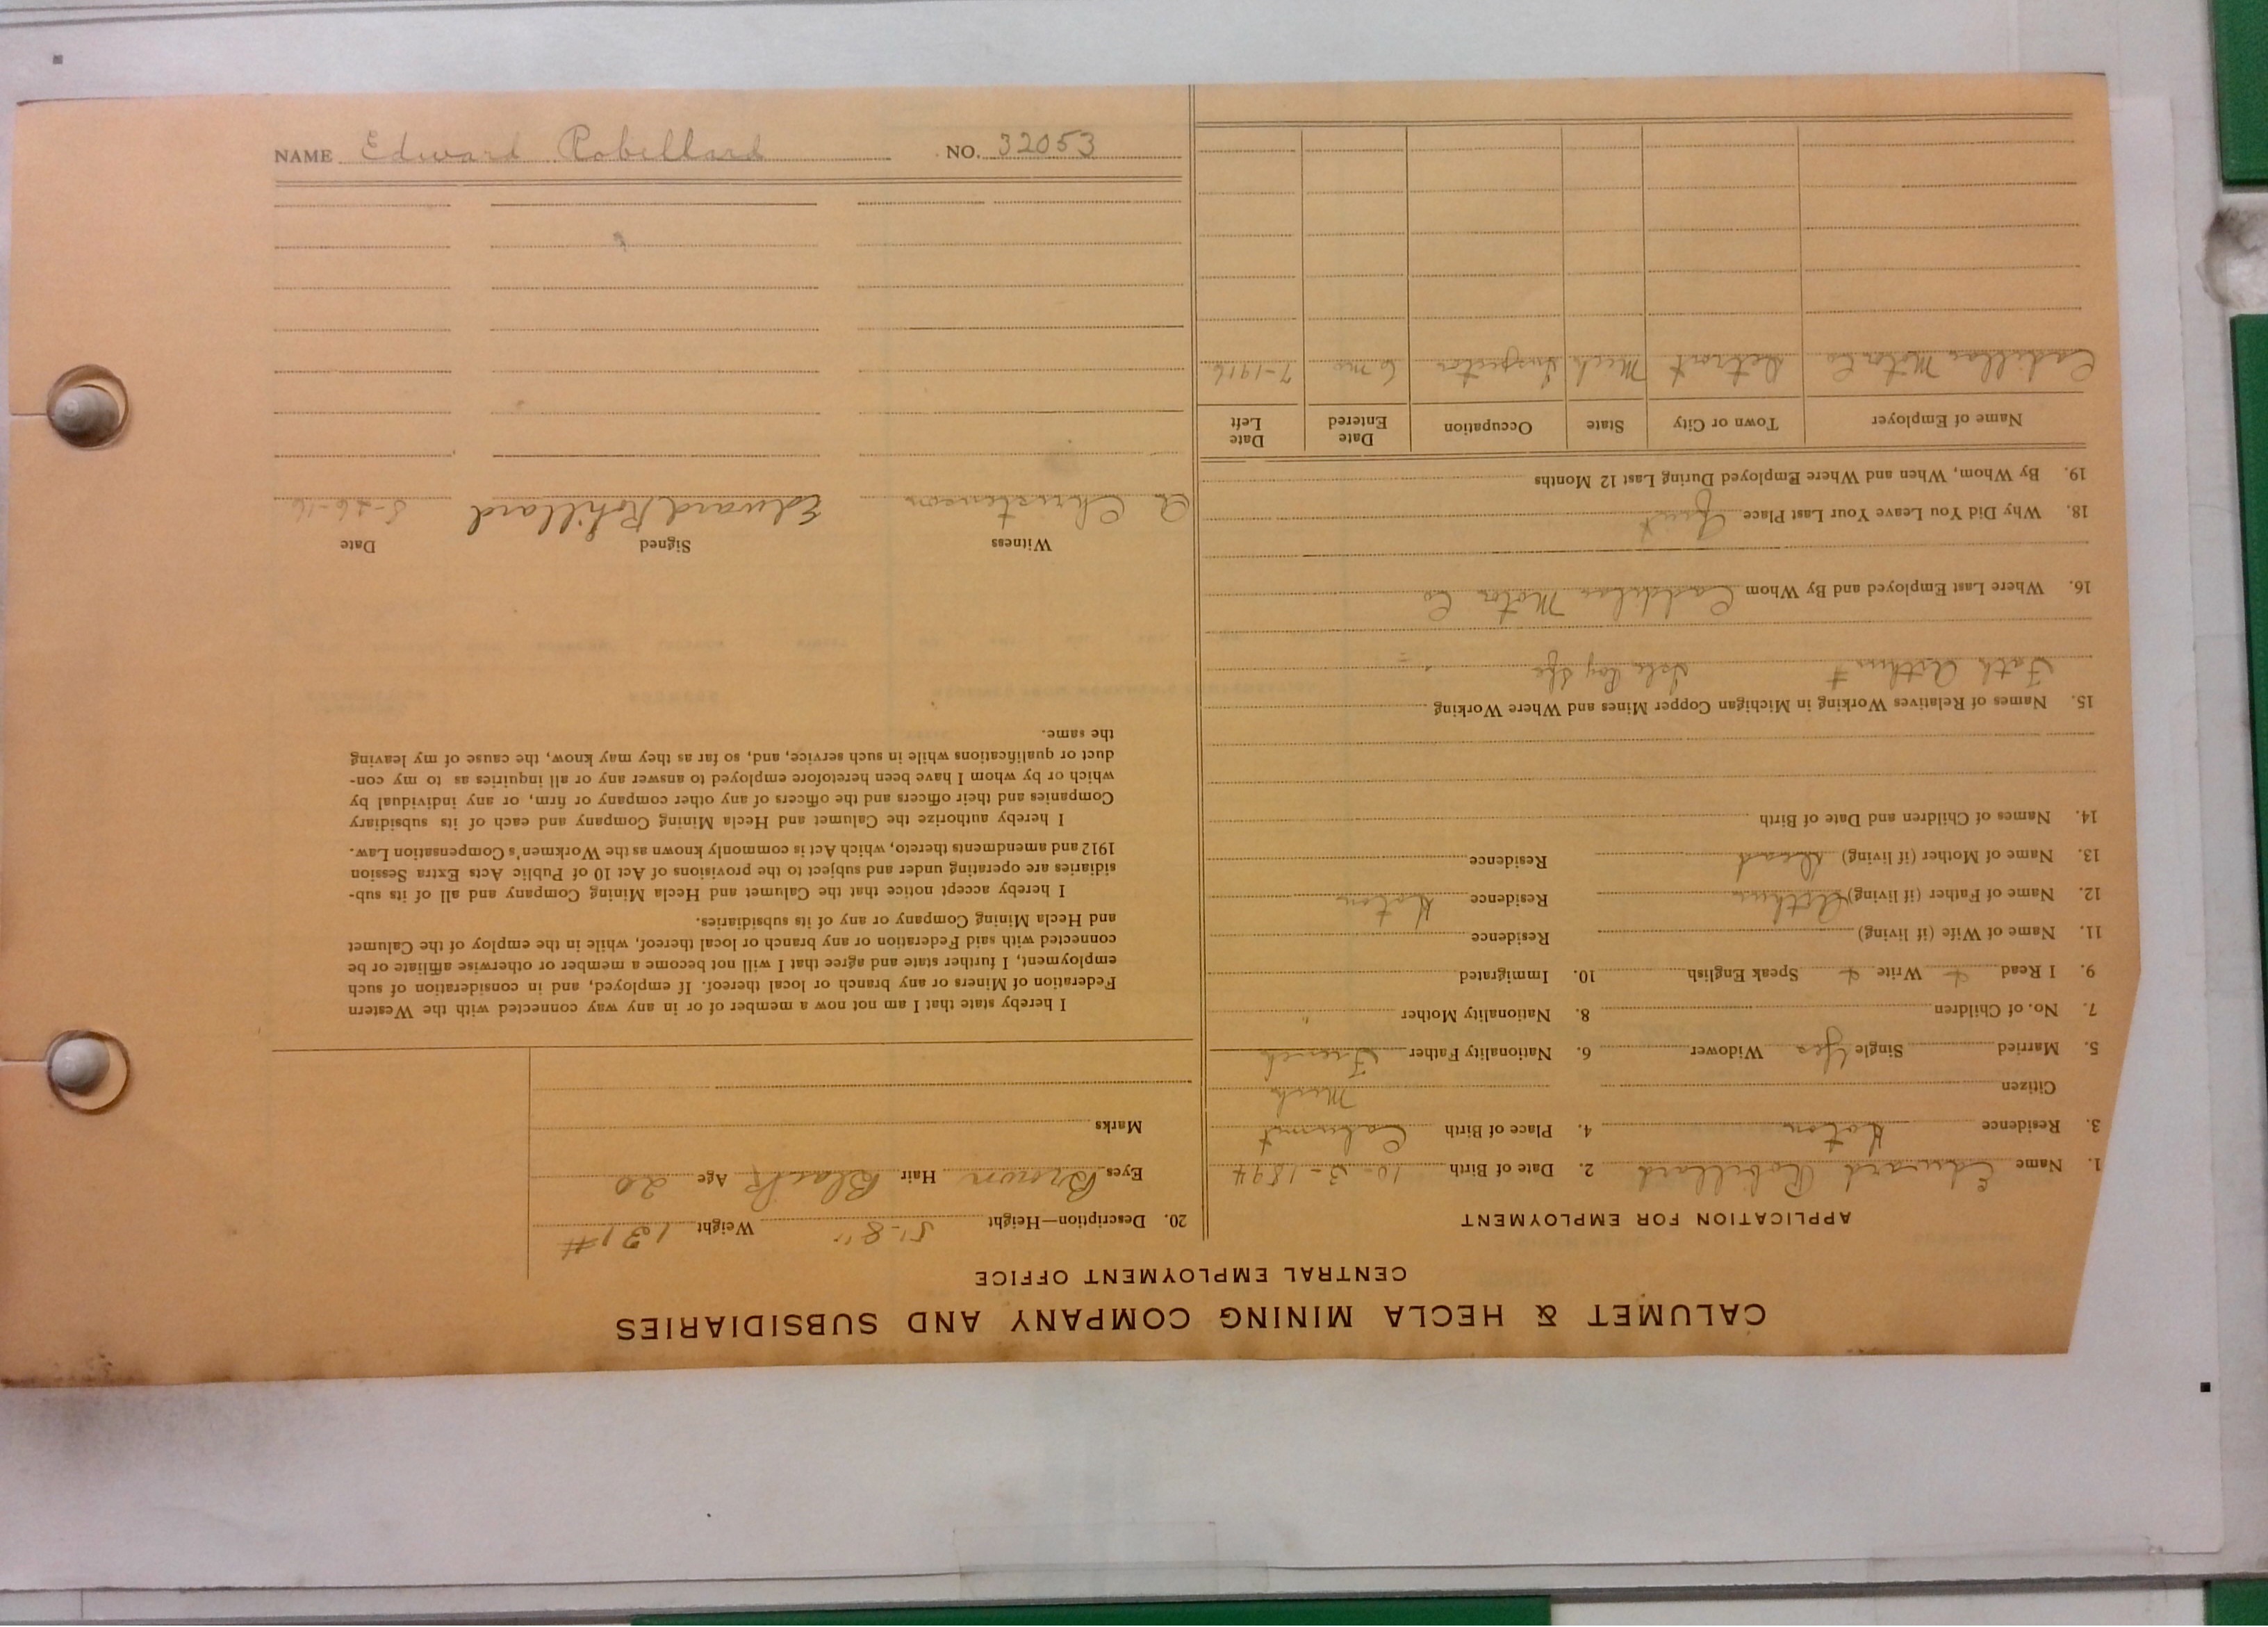 CALUMET & HECLA MINING COMPANY AND SUBSIDIARIES
CENTRAL EMPLOYMENT OFFICE
APPLICATION FOR EMPLOYMENT
1. Name Edward Robillard 2. Date of Birth 10-3-1894
3. Residence Hoton 4. Place of Birth Calumet
Citizen Mich
5. Married Single Yes Widower 6. Nationality Father French
7. No. of Children 8. Nationality Mother "
9. I Read Write Speak English 10. Immigrated
11. Name of Wife (if living) Residence
12. Name of Father (if living) Arthur Residence Hoton
13. Name of Mother (if living) dead Residence
14. Names of Children and Date of Birth
15. Names of Relatives Working in Michigan Copper Mines and Where Working
Fath Arthur Isle Roy
16. Where Last Employed and By Whom Caddilac Motor Co
18. Why Did You Leave Your Last Place Quit
19. By Whom, When and Where Employed During Last 12 Months
Name of Employer Town or City State Occupation Date Entered Date Left
Cadillac Motor Co Detroit Mich Inspector 6 mo 7-1916
20. Description—Height 5'-8" Weight 131 #
Eyes Brown Hair Black Age 20
Marks
I hereby state that I am not now a member of or in any way connected with the Western
Federation of Miners or any branch or local thereof. If employed, and in consideration of such
employment, I further state and agree that I will not become a member or otherwise affiliate or be
connected with said Federation or any branch or local thereof, while in the employ of the Calumet
and Hecla Mining Company or any of its subsidiaries.
I hereby accept notice that the Calumet and Hecla Mining Company and all of its sub-
sidiaries are operating under and subject to the provisions of Act 10 of Public Acts Extra Session
1912 and amendments thereto, which Act is commonly known as the Workmen's Compensation Law.
I hereby authorize the Calumet and Hecla Mining Company and each of its subsidiary
Companies and their officers and the officers of any other company or firm, or any individual by
which or by whom I have been heretofore employed to answer any or all inquiries as to my con-
duct or qualifications while in such service, and, so far as they may know, the cause of my leaving
the same.
Witness Signed Date
A Christenson Edward Robillard 8-26-16
NAME Edward Robillard NO. 32053